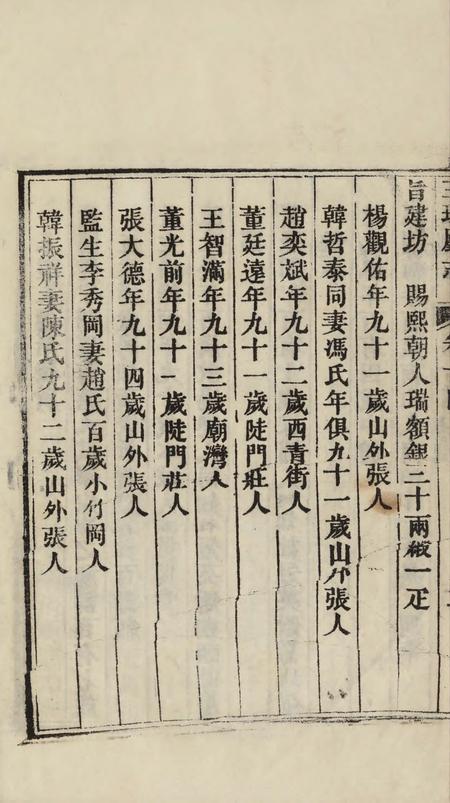 旨建坊　賜熙朝人瑞額銀三十兩緞一疋
楊觀佑年九十一歲山外張人
韓哲泰同妻馮氏年俱九十一歲山外張人
趙奕斌年九十二歲西青街人
董廷遠年九十一歲陡門莊人
王智滿年九十三歲廟灣人
董光前年九十一歲陡門莊人
張大德年九十四歲山外張人
監生李秀岡妻趙氏百歲小付岡人
韓振祥妻陳氏九十二歲山外張人